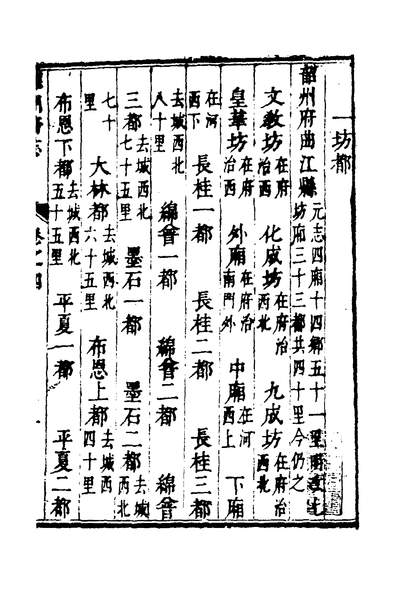 坊都
韶州府曲江縣元志四廂十四鄉五十一里
坊廂三十三都共四十里今仍之
文教坊在府治西 化成坊在府治西北 九成坊在府治西北
皇華坊在府治西 外廂在府治南門外 中廂在河西上 下廂
在河西下 長桂一都 長桂二都 長桂三都
去城西北八十里 綿會一都 綿會二都 綿會
三都去城西北七十五里 墨石一都 墨石二都去城西北
七十里 大林都去城西北六十五里 布恩上都去城西四十里
布恩下都去城西北五十五里 平夏一都 平夏二都
卷之四